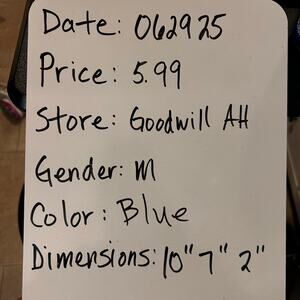 Date: 062925
Price: 5.99
Store: Goodwill AH
Gender: M
Color: Blue
Dimensions: 10" 7" 2"